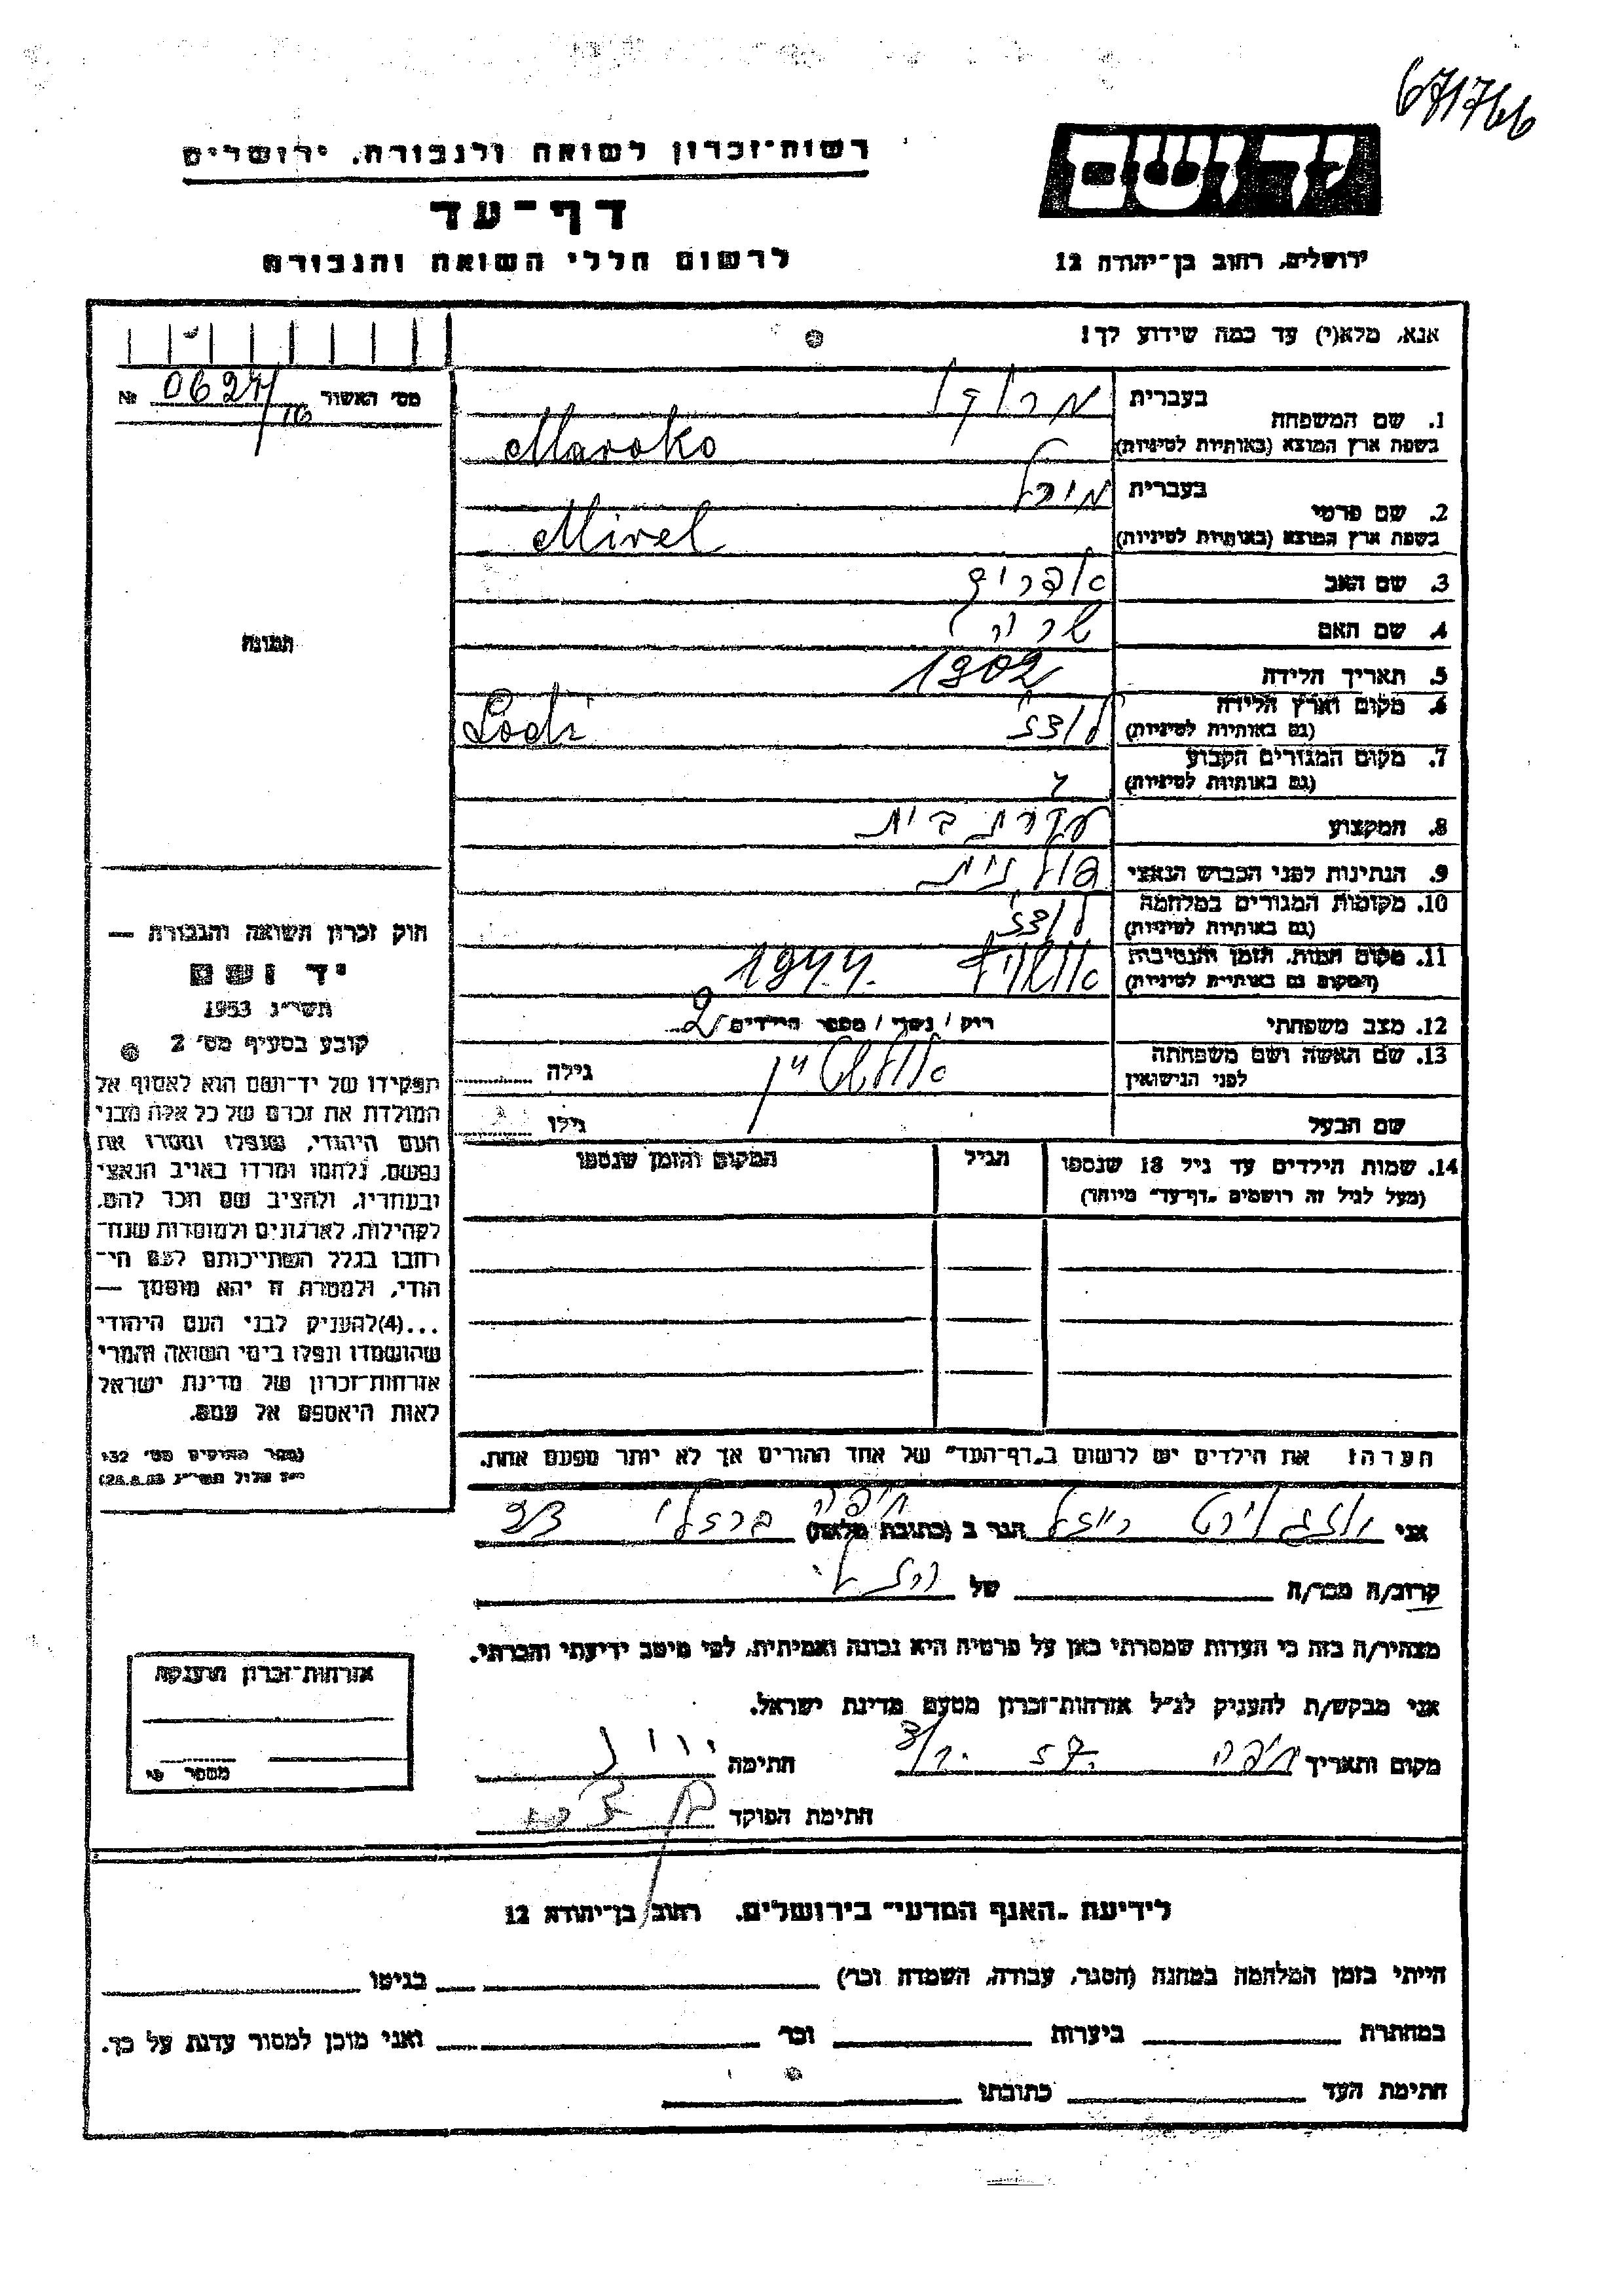 671766
רשות־זכרון לשואה ולגבורה, ירושלים
יד ושם
דף־עד
לרשום חללי השואה והגבורה
ירושלים, רחוב בן־יהודה 12
אנא, מלא(י) עד כמה שידוע לך!
מס׳ האשור 0627/16 №
1. שם המשפחה
בעברית מרוקו
בשפת ארץ המוצא (באותיות לטיניות) Maroko
2. שם פרטי
בעברית מירל
בשפת ארץ המוצא (באותיות לטיניות) Mirel
3. שם האב
4. שם האם שרה
5. תאריך הלידה 1902
6. מקום וארץ הלידה
(גם באותיות לטיניות) לודז׳ Lodz
7. מקום המגורים הקבוע
(גם באותיות לטיניות)
8. המקצוע עקרת בית
9. הנתינות לפני הכבוש הנאצי פולנית
10. מקומות המגורים במלחמה
(גם באותיות לטיניות) לודז׳
11. מקום המות, הזמן והנסיבות
(המקום גם באותיות לטיניות) אושויץ 1944.
12. מצב משפחתי רוק / נשוי / מספר הילדים 2
13. שם האשה ושם משפחתה
לפני הנישואין גילה
שם הבעל גילו
14. שמות הילדים עד גיל 18 שנספו
(מעל לגיל זה רושמים „דף־עד״ מיוחד)
הגיל
המקום והזמן שנספו
הערה: את הילדים יש לרשום ב„דף־העד״ של אחד ההורים אך לא יותר מפעם אחת.
תמונה
חוק זכרון השואה והגבורה —
יד ושם
תשי״ג 1953
קובע בסעיף מס׳ 2
תפקידו של יד־ושם הוא לאסוף אל
המולדת את זכרם של כל אלה מבני
העם היהודי, שנפלו ומסרו את
נפשם, נלחמו ומרדו באויב הנאצי
ובעוזריו, ולהציב שם וזכר להם,
לקהילות, לארגונים ולמוסדות שנח־
רבו בגלל השתייכותם לעם הי־
הודי, ולמטרה זו יהא מוסמך —
...(4)להעניק לבני העם היהודי
שהושמדו ונפלו בימי השואה והמרי
אזרחות־זכרון של מדינת ישראל
לאות היאספם אל עמם.
(ספר החוקים מס׳ 132
י״ז אלול תשי״ג 28.8.53)
אני רייזל הגר ב (כתובת מלאה) חיפה ברזלי
קרוב/ה מכר/ה של
מצהיר/ה בזה כי העדות שמסרתי כאן על פרטיה היא נכונה ואמיתית, לפי מיטב ידיעתי והכרתי.
אני מבקש/ת להעניק לנ״ל אזרחות־זכרון מטעם מדינת ישראל.
מקום ותאריך חיפה 57. חתימה
חתימת הפוקד
אזרחות־זכרון הוענקה
מספר
לידיעת „האגף המדעי״ בירושלים, רחוב בן־יהודה 12
הייתי בזמן המלחמה במחנה (הסגר, עבודה, השמדה וכו׳) בגיטו
במחתרת ביערות וכו׳ ואני מוכן למסור עדות על כך.
חתימת העד כתובתו